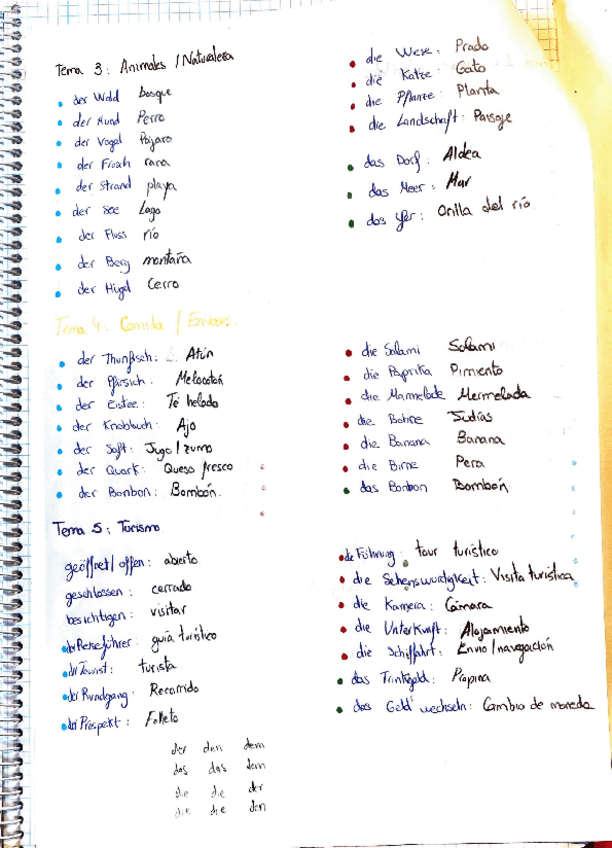 Tema 3: Animales / Naturaleza
der Wald bosque
der Hund Perro
der Vogel Pájaro
der Frosch rana
der Strand playa
der See Lago
der Fluss río
der Berg montaña
der Hügel Cerro
die Wiese: Prado
die Katze: Gato
die Pflanze: Planta
die Landschaft: Paisaje
das Dorf: Aldea
das Meer: Mar
das Ufer: Orilla del río
Tema 4: Comida / Envases
der Thunfisch: Atún
der Pfirsich: Melocotón
der Eistee: Té helado
der Knoblauch: Ajo
der Saft: Jugo / zumo
der Quark: Queso fresco
der Bonbon: Bombón
die Salami Salami
die Paprika Pimiento
die Marmelade Mermelada
die Bohne Judías
die Banana Banana
die Birne Pera
das Bonbon Bombón
Tema 5: Turismo
geöffnet / offen: abierto
geschlossen: cerrado
besichtigen: visitar
der Reiseführer: guía turístico
der Tourist: turista
der Rundgang: Recorrido
der Prospekt: Folleto
die Führung: tour turístico
die Sehenswürdigkeit: Visita turística
die Kamera: Cámara
die Unterkunft: Alojamiento
die Schifffahrt: Envio / navegación
das Trinkgeld: Propina
das Geld wechseln: Cambio de moneda
der den dem
das das dem
die die der
die die den